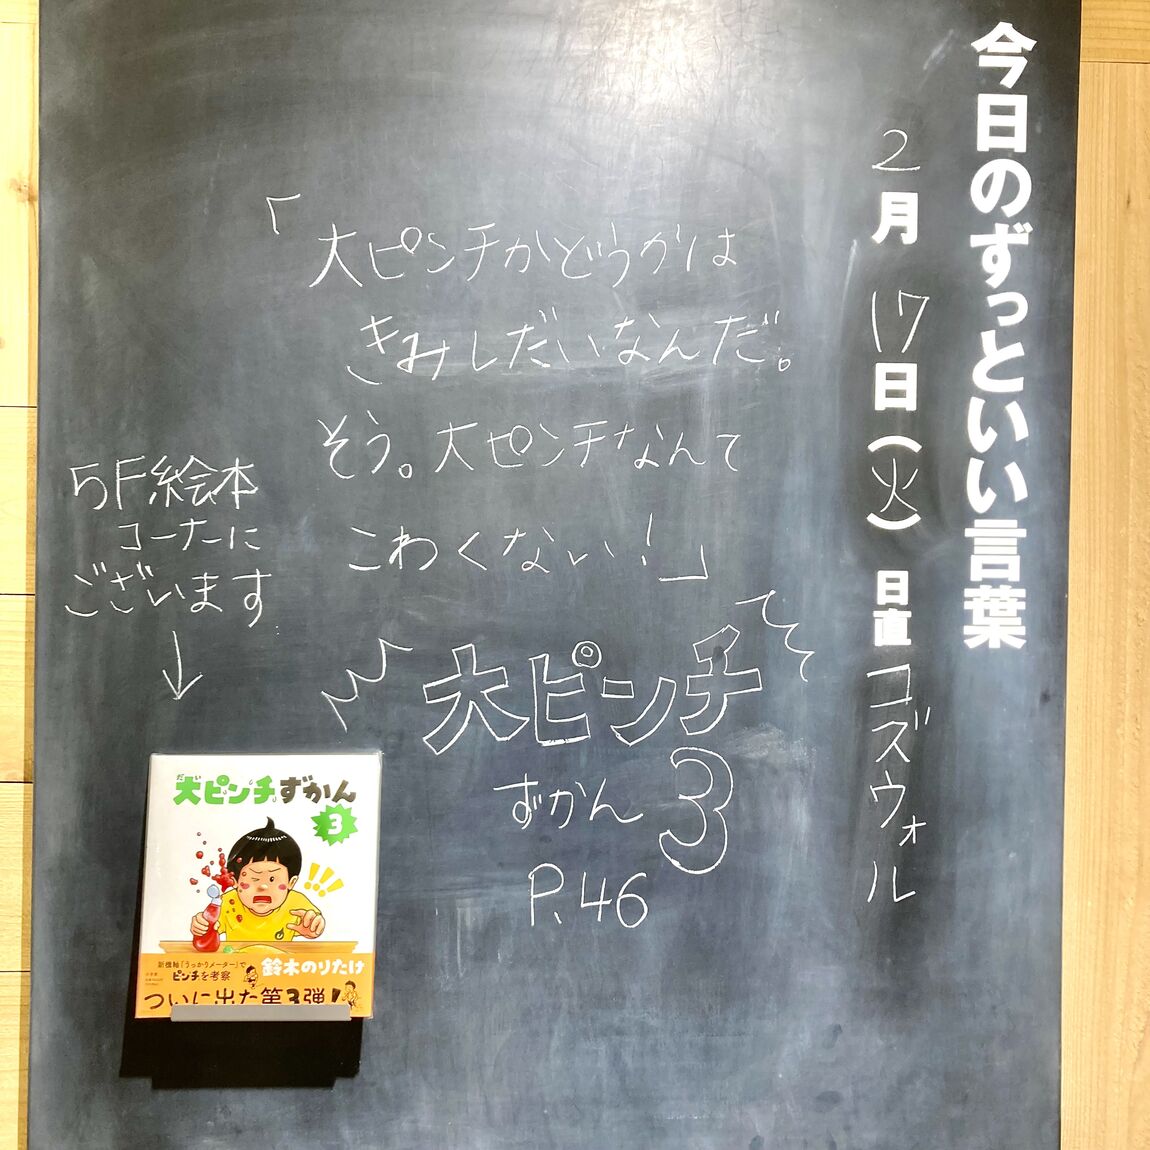 今日のずっといい言葉
2月17日(火) 日直 コズウォル
「大ピンチかどうかは
きみしだいなんだ。
そう。大ピンチなんて
こわくない!」
大ピンチ
ずかん 3
P.46
5F絵本
コーナーに
ございます
↓
だい
大ピンチずかん
3
新機軸「うっかりメーター」で
ピンチを考察
鈴木のりたけ
小学館
ついに出た第3弾!